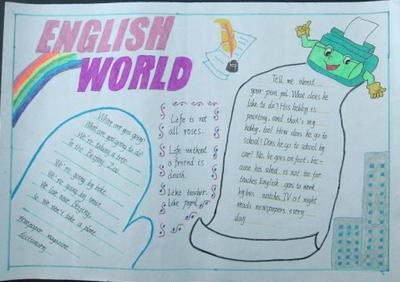 ENGLISH
WORLD
Where are you going?
What are you going to do?
We're taking a trip
To the Beijing Zoo.
We're going by bike.
We're going by
We live near Beijing,
So we don't take a plane
newspaper magazine
dictionary
Life is not
all roses.
Life without
a friend is
death.
Like teacher,
like pupil.
Tell me about
your pen pal. What does he
like to do? His hobby is
painting, and that's my
hobby, too! How does he go to
school? Does he go to school by
car? No, he goes on foot, bec-
ause his school is not too far
teaches English. goes to work
by bus. watches TV at night
reads newspapers every
day